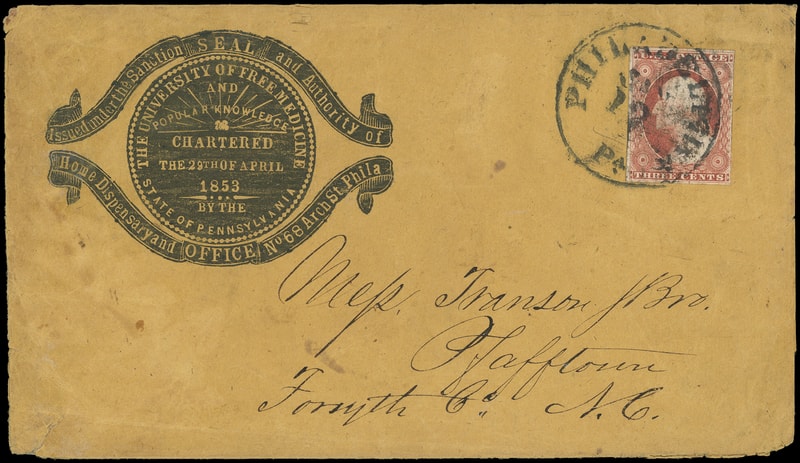 Issued under the Sanction SEAL and Authority of
THE UNIVERSITY OF FREE MEDICINE
AND
POPULAR KNOWLEDGE
CHARTERED
THE 29TH OF APRIL
1853
BY THE
STATE OF PENNSYLVANIA
Home Dispensary and OFFICE No 68 Arch St. Phila
PHILADELPHIA
Pa.
THREE CENTS
Mess. Transou & Bro.
Pfafftown
Forsyth Co. N.C.